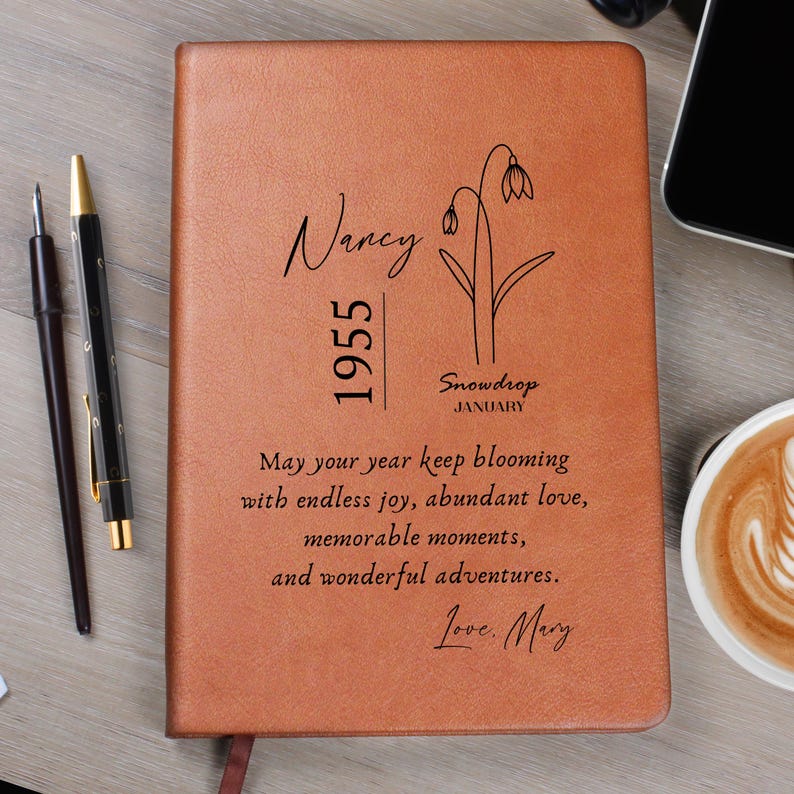 Nancy
1955
Snowdrop
JANUARY
May your year keep blooming
with endless joy, abundant love,
memorable moments,
and wonderful adventures.
Love, Mary